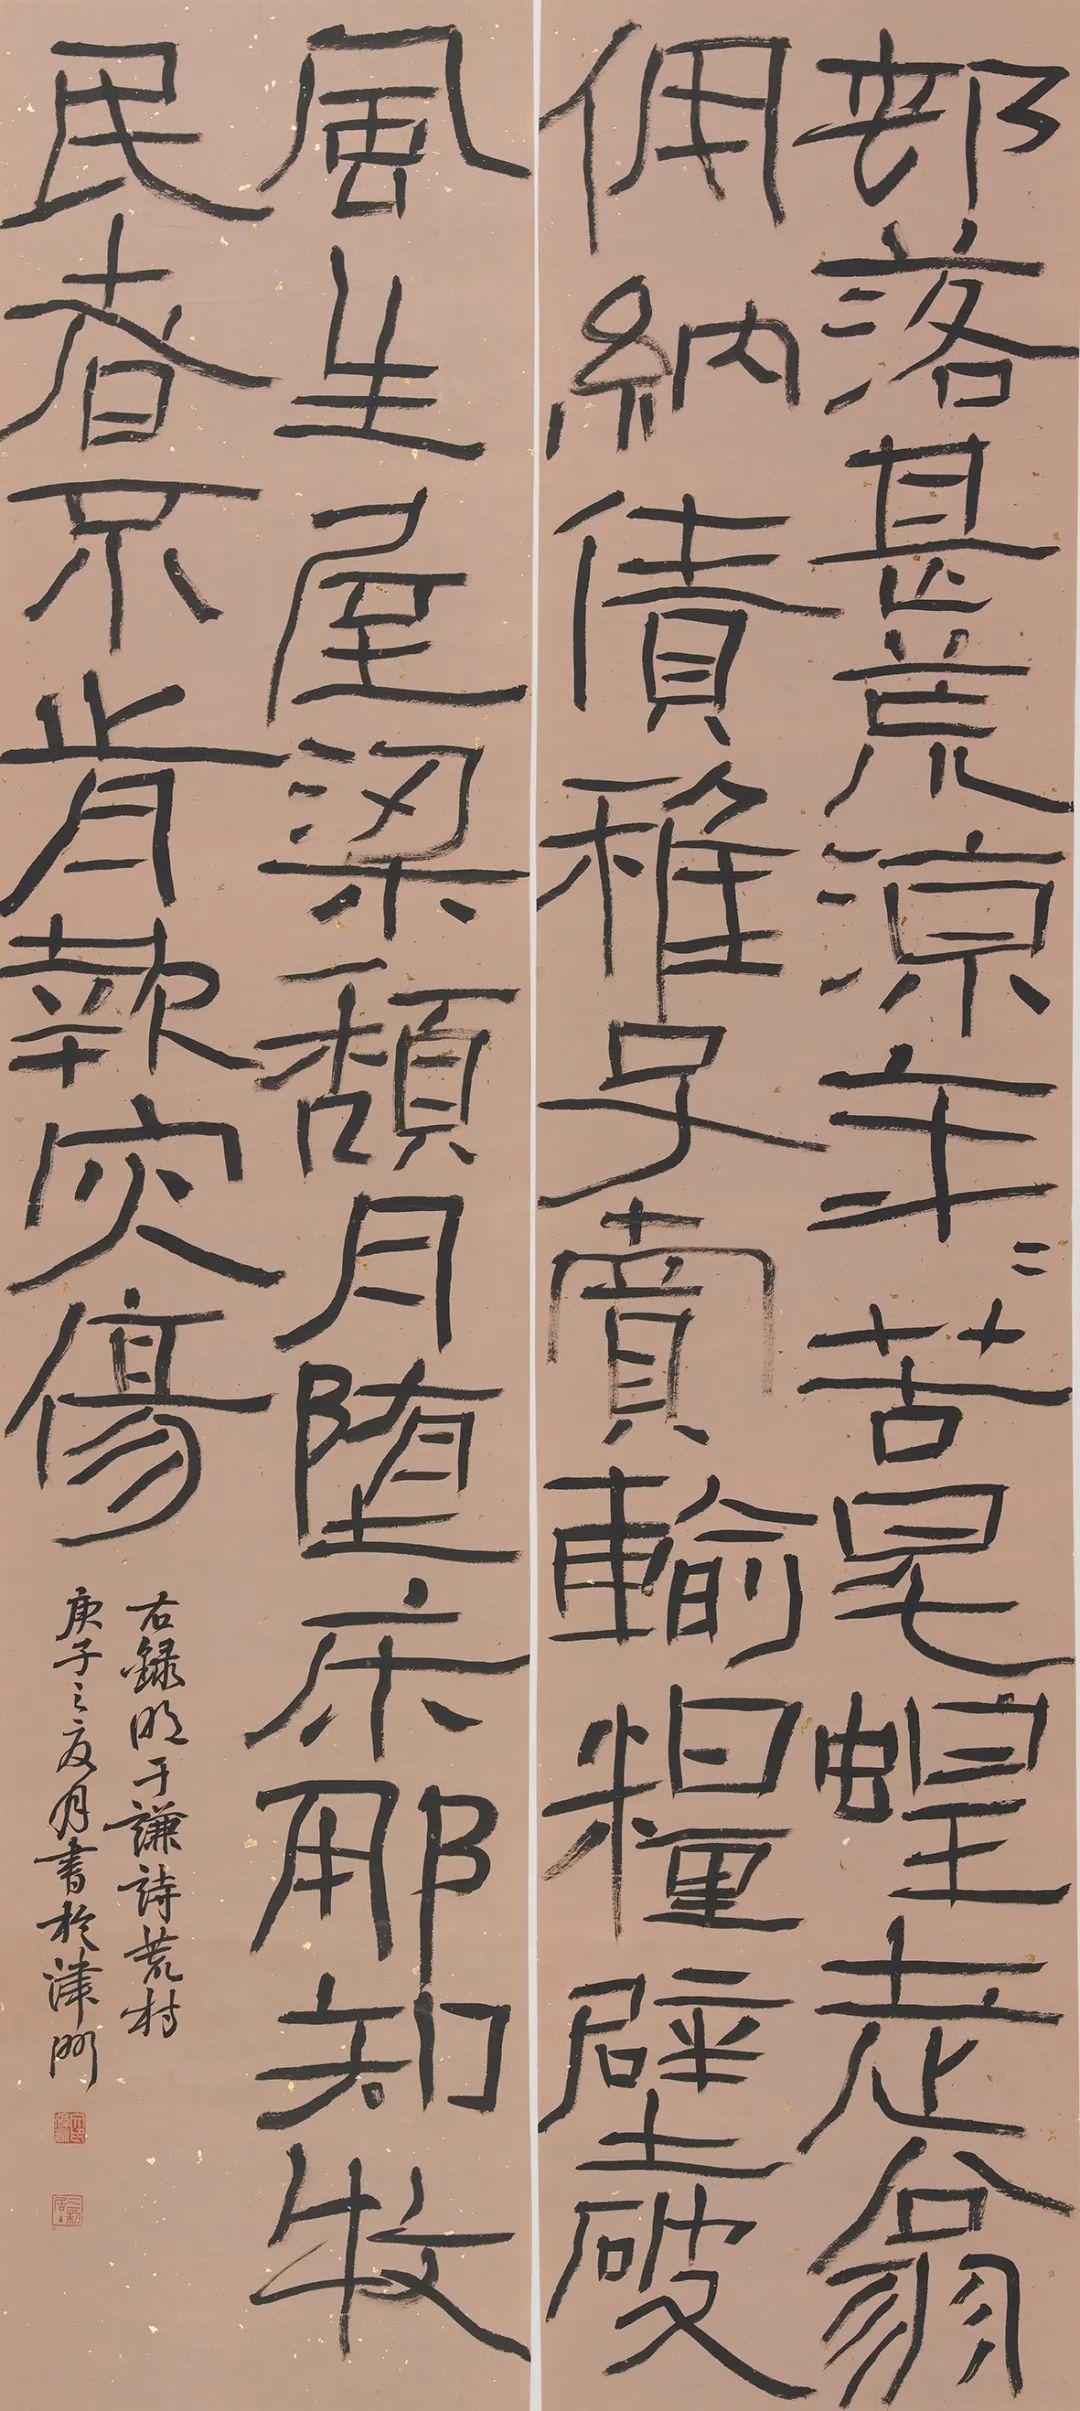 邨落甚荒涼年々苦旱蝗老翁
佣納債稚子賣輸糧壁破
風生屋梁頹月堕床那知牧
民者不肯報灾傷
右録明于謙詩荒村
庚子之夏月書於津門